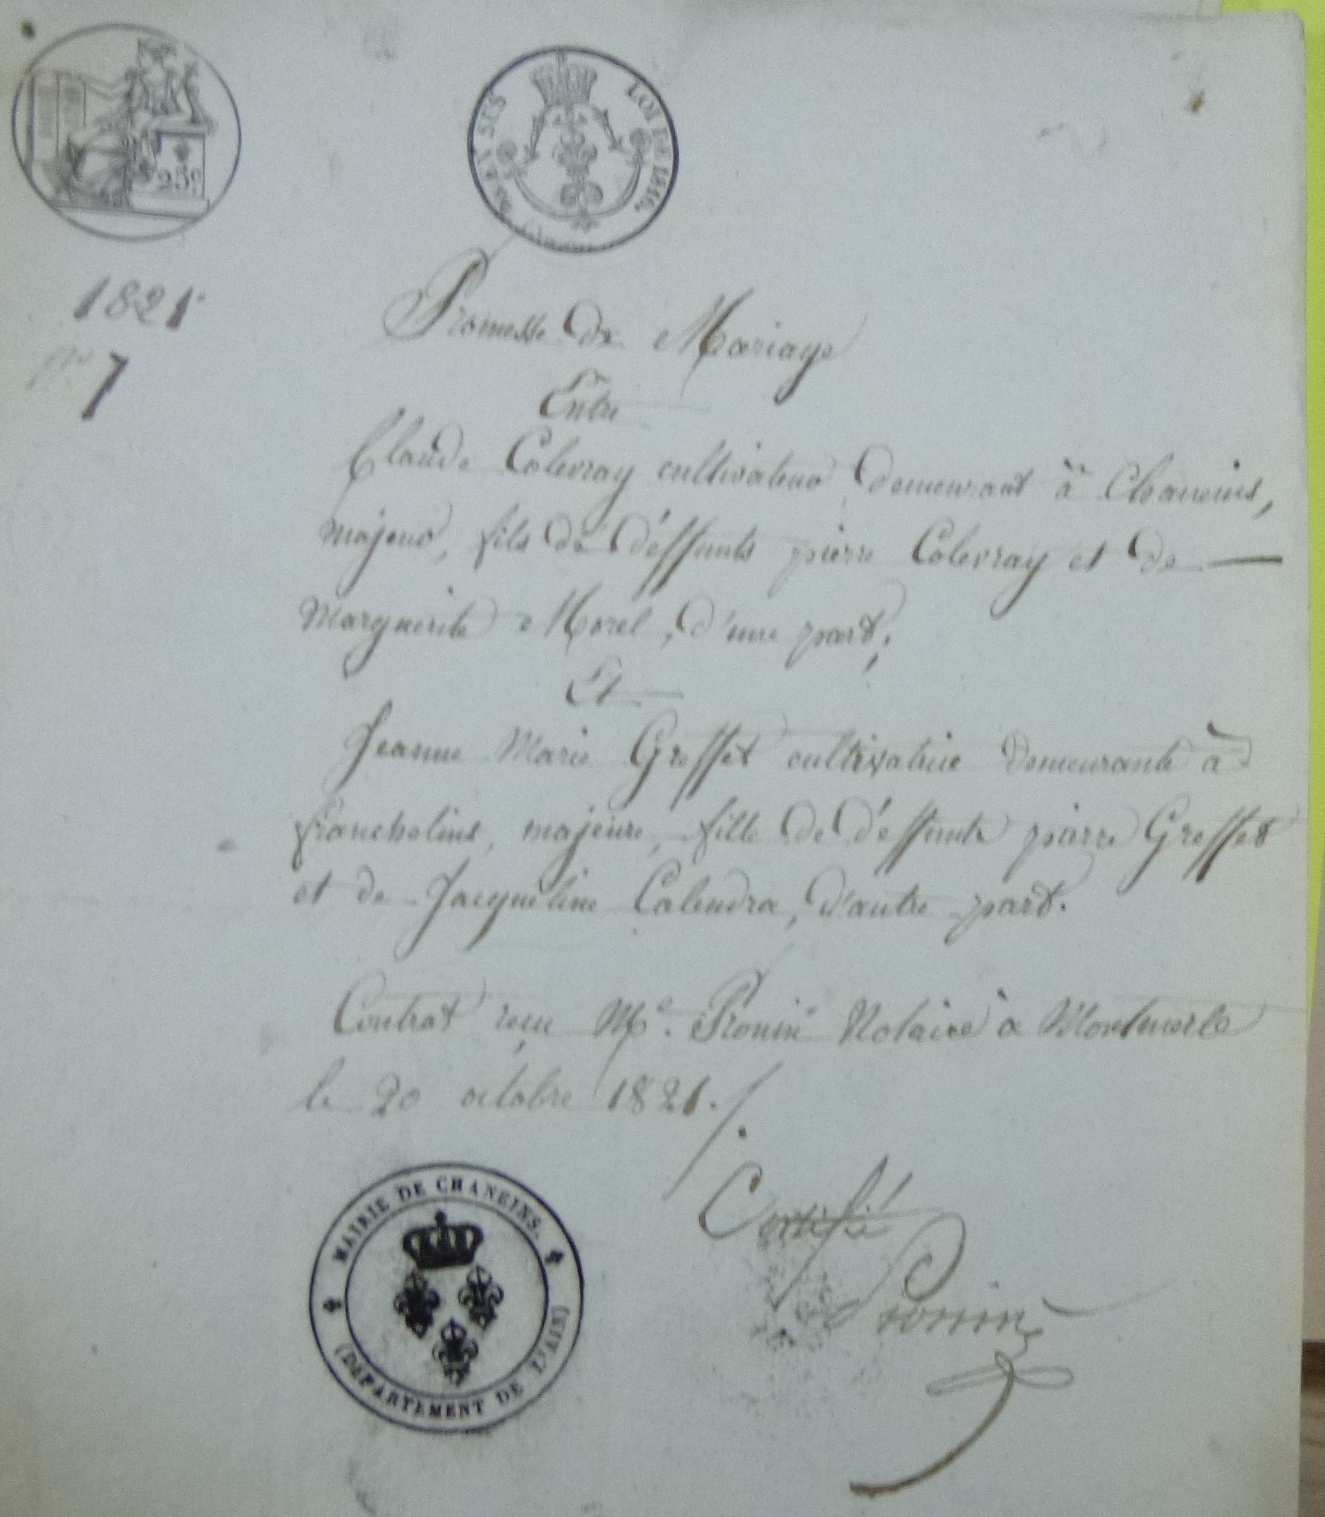 25c
EN SUS
LOI DE 1816.
1821
N° 7
Promesse de Mariage
Entre
Claude Colevray cultivateur demeurant à Chaneins,
majeur, fils de déffunts pierre Colevray et de
Marguerite Morel, d'une part;
Et
Jeanne Marie Greffet cultivatrice demeurante à
francheleins, majeure, fille de déffunts pierre Greffet
et de Jacqueline Calendra, d'autre part.
Contrat reçu Me. Pronin Notaire à Montmerle
le 20 octobre 1821.
Certifié
Pronin
MAIRIE DE CHANEINS.
(DÉPARTEMENT DE L'AIN)